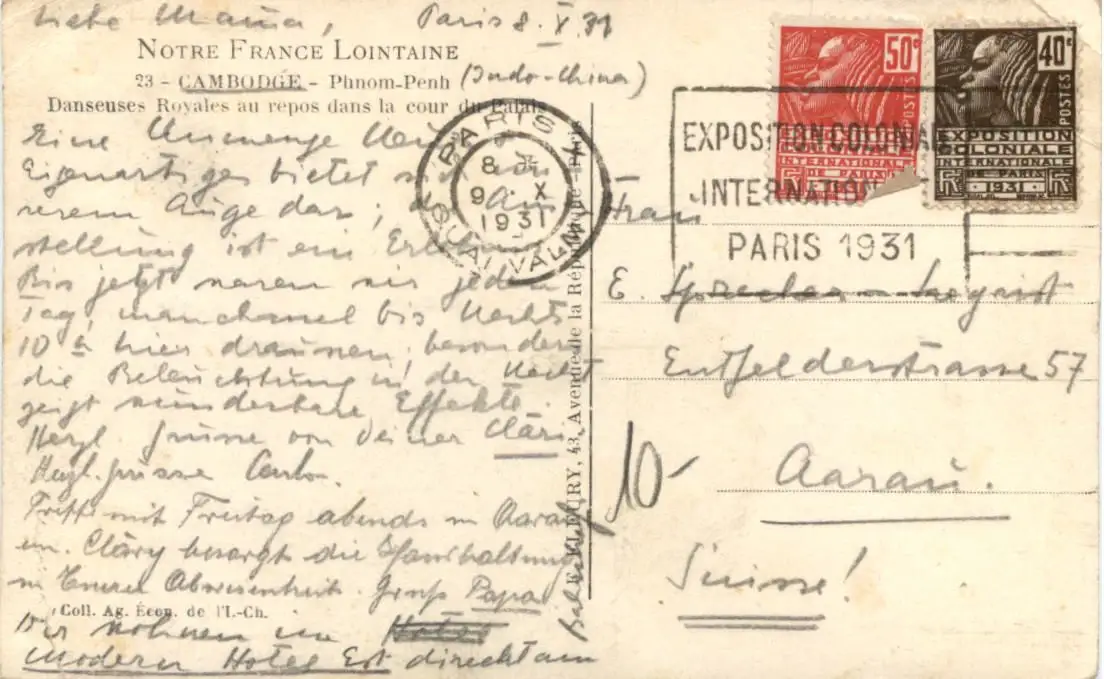 Liebe Mama, Paris 8. X. 31
NOTRE FRANCE LOINTAINE
23 - CAMBODGE - Phnom-Penh (Indo-China)
Danseuses Royales au repos dans la cour du Palais
Eine Unmenge Neues
Eigenartiges bietet sich
serem Auge dar, die Aus-
stellung ist ein
Bis jetzt waren wir jeden
Tag, manchmal bis Nachts
10 h hier draussen, besonders
die Beleuchtung in der Nacht
zeigt wunderbare Effekte.
Herzl. Grüsse von Deiner Cläri.
Herzl. Grüsse
mit Freitag abends in Aarau
ein. Cläry besorgt die Haushaltung
in Abwesenheit. Gruss Papa
Coll. Ag. Écon. de l'I.-Ch.
Wir wohnen im Hotel
Modern Hotel Est direkt am
Bahnhof
FLEURY, 43, Avenue de la République - Paris
PARIS
8 H
9 · X
1931
QUAI VALMY
EXPOSITION COLONIALE
INTERNATION
PARIS 1931
50c
POSTES
EXPOSITION
COLONIALE
INTERNATIONALE
DE PARIS
1931
40c
POSTES
EXPOSITION
COLONIALE
INTERNATIONALE
DE PARIS
1931
Frau
E. Sprecher-Siegrist
Entfelderstrasse 57
Aarau.
10-
Suisse!